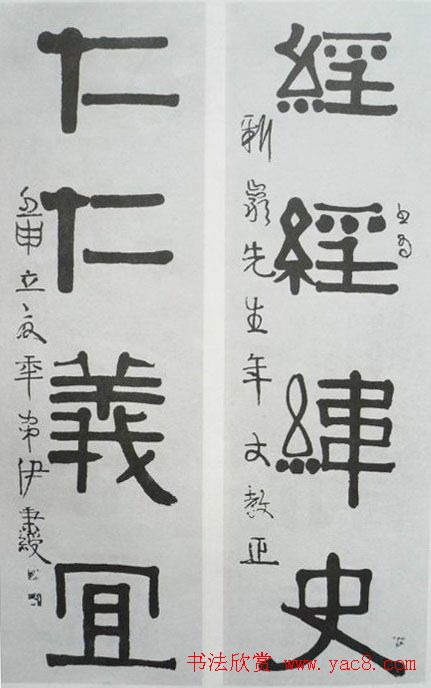 經經緯史
書為
巖先生年丈教正
仁仁義宜
壬申立夏年弟伊秉綬
书法欣赏 www.yac8.com